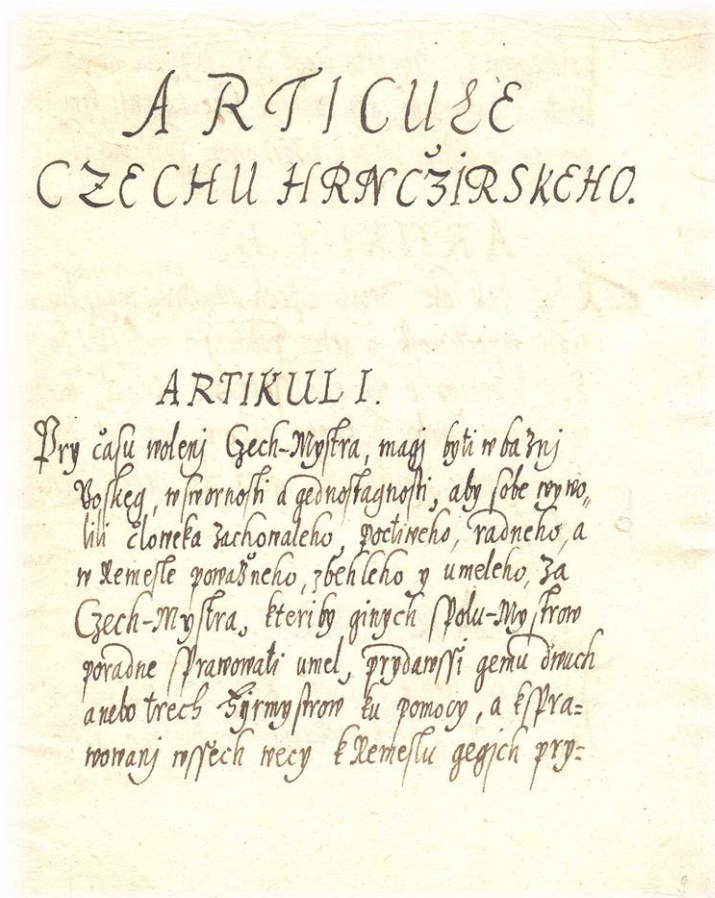 ARTICULE
CZECHU HRNCŽIRSKEHO.
ARTIKUL I.
Pry času wolenj Czech-Mystra, magj byti w bažnj
Boskeg, w swornosti a gednostagnosti, aby sobe wywo„
lili človeka zachowaleho, poctiweho, radneho, a
w Remesle powažneho, zbehleho y umeleho, za
Czech-Mystra, kteriby ginych spolu-Mystrow
poradne sprawowati umel, prydawssi gemu dwuch
anebo trech Byrmystrow ku pomocy, a kspra=
wowanj wssech wecy k Remeslu gegjch pry=